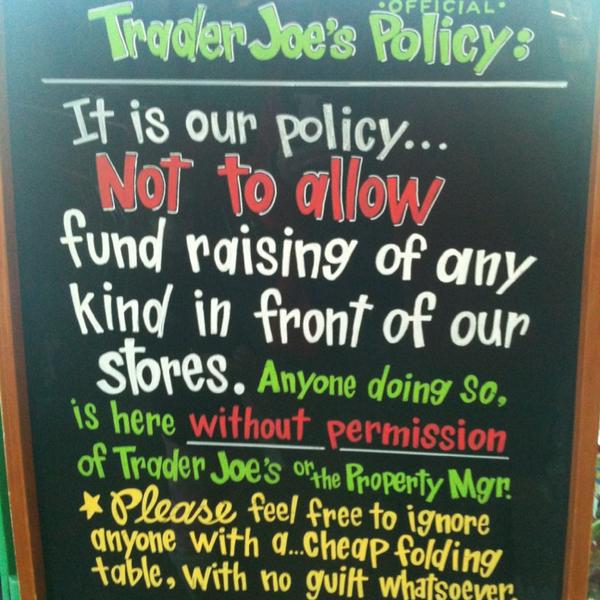 •OFFICIAL•
Trader Joe's Policy:
It is our policy...
Not to allow
fund raising of any
kind in front of our
stores. Anyone doing so,
is here without permission
of Trader Joe's or the Property Mgr.
★ Please feel free to ignore
anyone with a...cheap folding
table, with no guilt whatsoever.